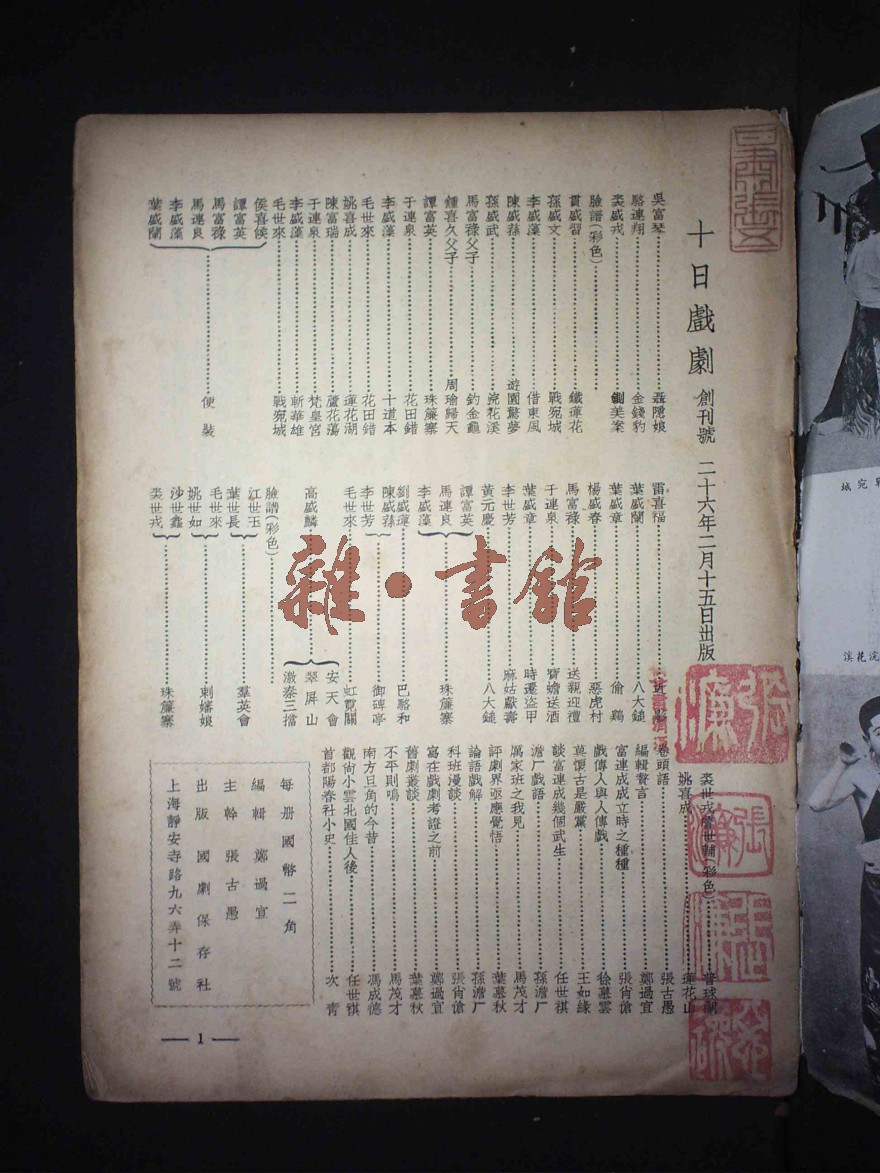 十日戲劇 創刊號 二十六年二月十五日出版
吳富琴……聶隱娘
駱連翔……金錢豹
裘盛戎……鍘美案
臉譜(彩色)……
貫盛習……鐵蓮花
孫盛文……戰宛城
李盛藻……借東風
陳盛蓀……遊園驚夢
孫盛武……浣花溪
馬富祿父子……釣金龜
鍾喜久父子……周瑜歸天
譚富英……珠簾寨
于連泉……花田錯
李盛藻……十道本
毛世來……花田錯
姚喜成……蓮花湖
陳富瑞……蘆花蕩
于連泉……梵皇宮
李盛藻……斬華雄
毛世來……戰宛城
侯喜候
譚富英
馬富祿
馬連良
李盛藻
葉盛蘭
便裝
雷喜福……
葉盛蘭……八大鎚
葉盛章……偷鷄
楊盛春……惡虎村
馬富祿……送親迎禮
于連泉……寶蟾送酒
葉盛章……時遷盜甲
李世芳……麻姑獻壽
黃元慶……八大鎚
譚富英
馬連良
李盛藻
珠簾寨
劉盛蓮……巴駱和
陳盛蓀
李世芳
御碑亭
毛世來……虹霓關
高盛麟……
安天會
翠屏山
激秦三擋
臉譜(彩色)……
江世玉
葉世長
羣英會
毛世來
姚世如
刺嬸娘
沙世鑫
裘世戎
珠簾寨
裘世戎詹世輔(彩色)……普球山
姚喜成……蓮花山
卷頭語……張古愚
編輯贅言……鄭過宜
富連成成立時之種種……張肖傖
戲傳人與人傳戲……徐慕雲
莫懷古是嚴黨……王如緣
談富連成幾個武生……任世祺
澹厂戲語……孫澹厂
厲家班之我見……馬茂才
評劇界亟應覺悟……葉慕秋
論語戲解……孫澹厂
科班漫談……張肖傖
寫在戲劇考證之前……鄭過宜
舊劇叢談……葉慕秋
不平則鳴……馬茂才
南方旦角的今昔……馮成德
觀尙小雲北國佳人後……任世祺
首都陽春社小史……次青
每册國幣二角
編輯 鄭過宜
主幹 張古愚
出版 國劇保存社
上海靜安寺路九六弄十二號
— 1 —
雜·書館
戰宛城
浣花溪